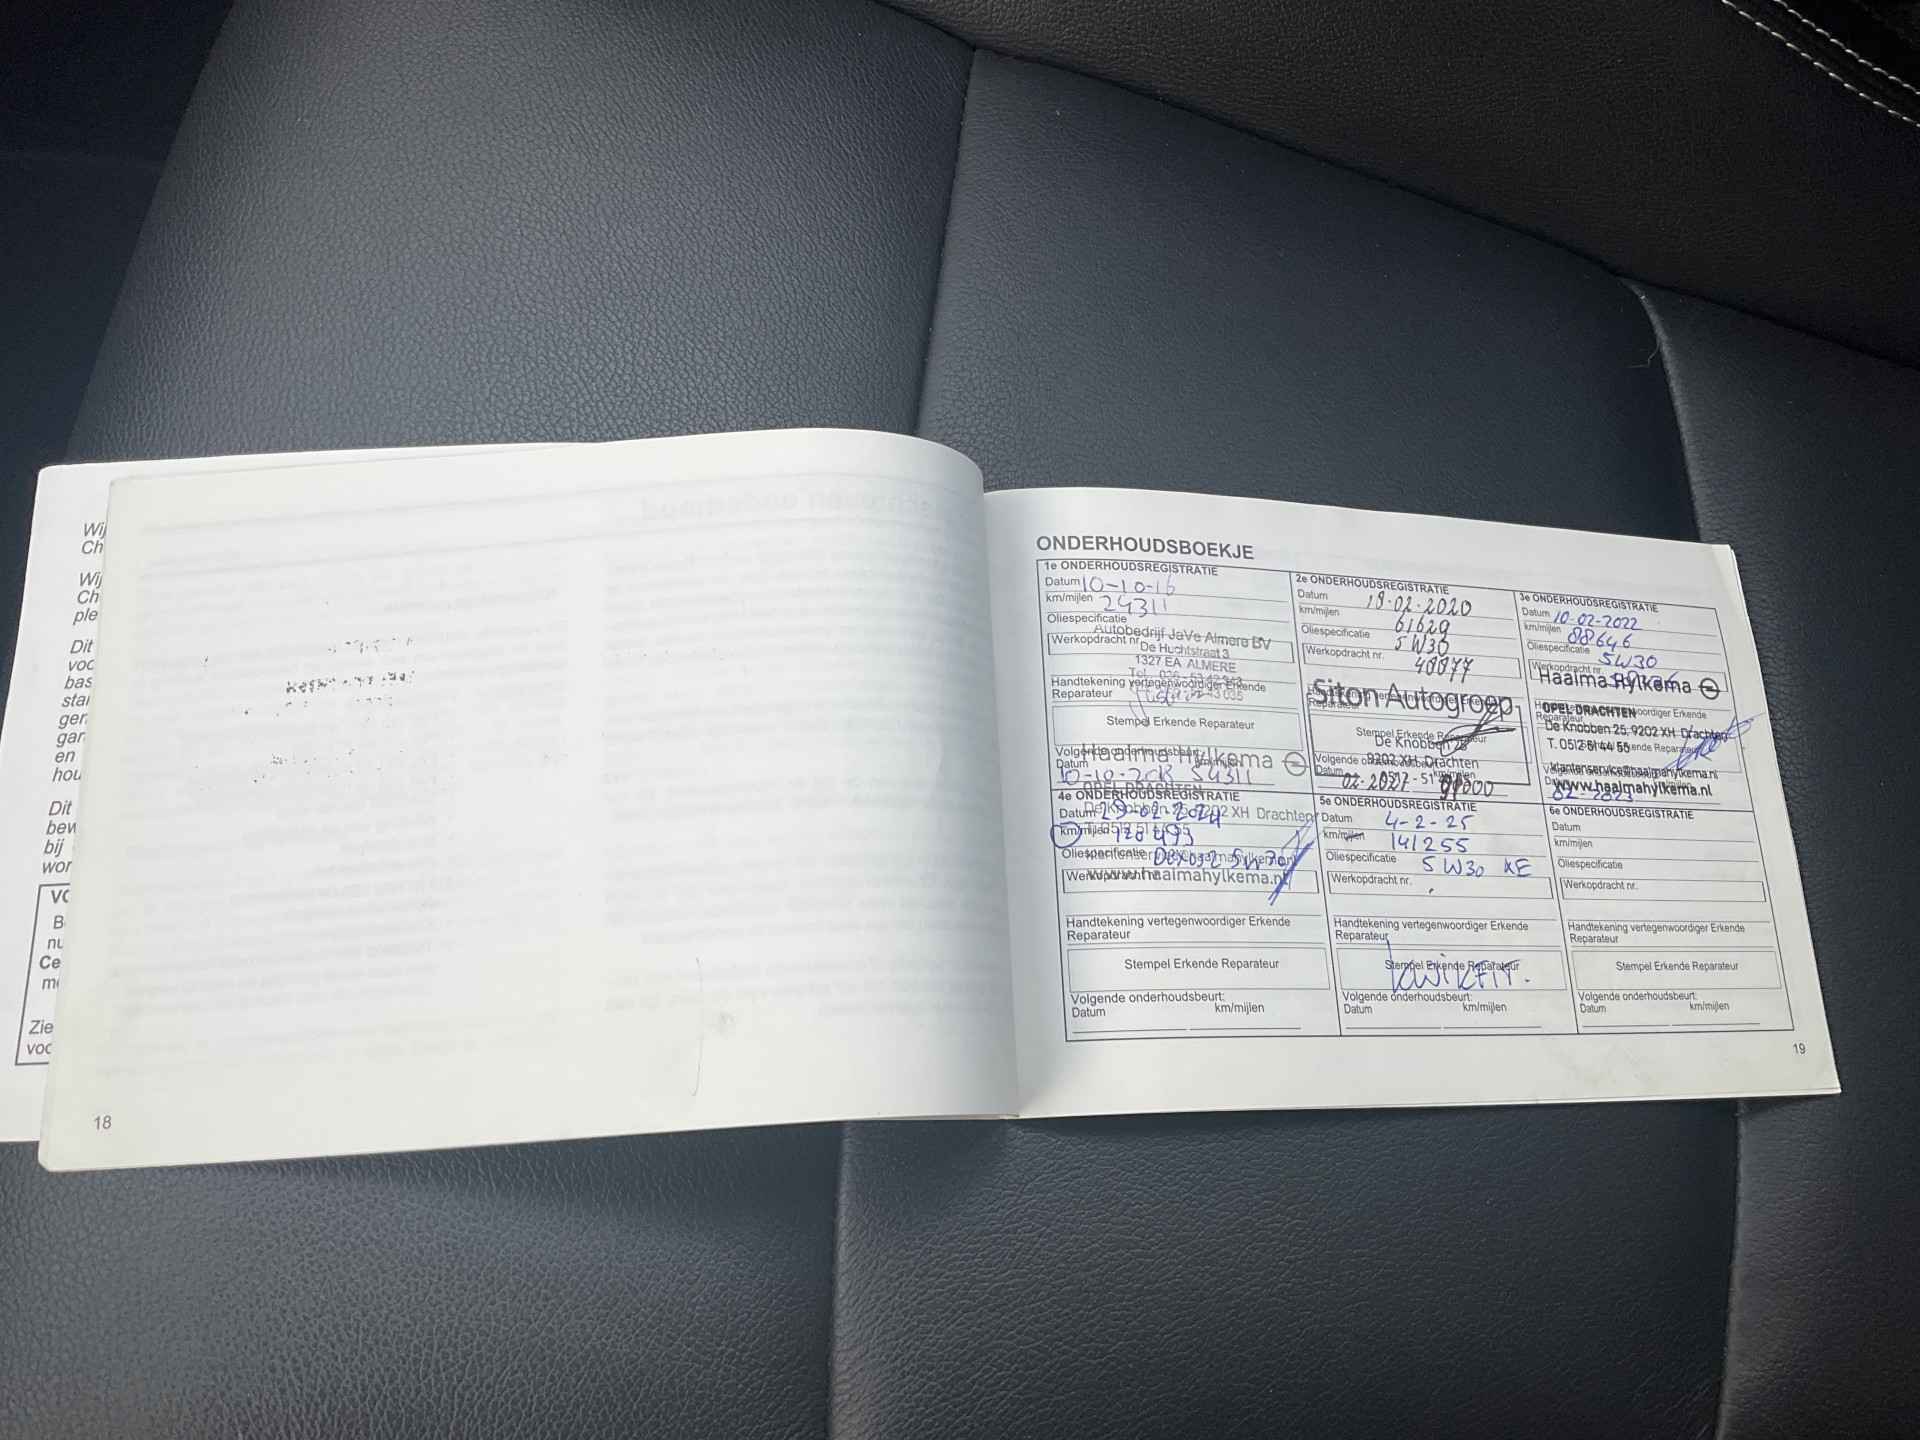 Wij
Ch
Wij
Ch
ple
Dit
voo
bas
star
gar
en
hou
Dit
bew
bij
wor
VO
nu
Ce
Zie
voo
18
ONDERHOUDSBOEKJE
1e ONDERHOUDSREGISTRATIE
Datum 10-10-16
km/mijlen 24311
Oliespecificatie
Autobedrijf JaVe Almere BV
Werkopdracht nr.
De Huchtstraat 3
1327 EA ALMERE
Handtekening vertegenwoordiger Erkende
Reparateur
Stempel Erkende Reparateur
Volgende onderhoudsbeurt:
Datum km/mijlen
54311
2e ONDERHOUDSREGISTRATIE
Datum 18-02-2020
km/mijlen 61629
Oliespecificatie 5W30
Werkopdracht nr. 48877
Siton Autogroep
Stempel Erkende Reparateur
De Knobben 25
9202 XH Drachten
Volgende onderhoudsbeurt:
Datum
3e ONDERHOUDSREGISTRATIE
Datum 10-02-2022
km/mijlen 88646
Oliespecificatie 5W30
Werkopdracht nr.
Haalma Hylkema
OPEL DRACHTEN
De Knobben 25, 9202 XH Drachten
T. 0512 51 44 55
klantenservice@haalmahylkema.nl
www.haalmahylkema.nl
4e ONDERHOUDSREGISTRATIE
Haalma Hylkema
OPEL DRACHTEN
De Knobben 25, 9202 XH Drachten
Datum 29-02-2024
km/mijlen
Oliespecificatie 5W30
Werkopdracht nr.
www.haalmahylkema.nl
Handtekening vertegenwoordiger Erkende
Reparateur
Stempel Erkende Reparateur
Volgende onderhoudsbeurt:
Datum km/mijlen
5e ONDERHOUDSREGISTRATIE
Datum 4-2-25
km/mijlen 141255
Oliespecificatie 5W30
Werkopdracht nr.
Handtekening vertegenwoordiger Erkende
Reparateur
Stempel Erkende Reparateur
KWIKFIT.
Volgende onderhoudsbeurt:
Datum km/mijlen
6e ONDERHOUDSREGISTRATIE
Datum
km/mijlen
Oliespecificatie
Werkopdracht nr.
Handtekening vertegenwoordiger Erkende
Reparateur
Stempel Erkende Reparateur
Volgende onderhoudsbeurt:
Datum km/mijlen
19